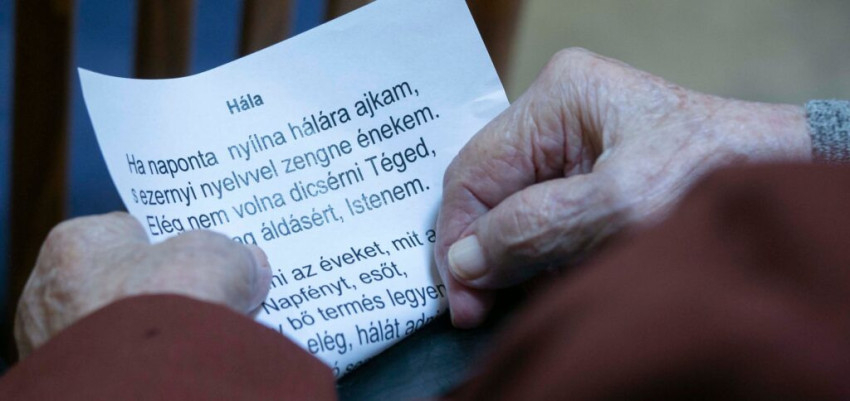 Hála
Ha naponta nyílna hálára ajkam,
s ezernyi nyelvvel zengne énekem.
Elég nem volna dicsérni Téged,
áldásért, Istenem.
az éveket, mit a
Napfényt, esőt,
bő termés legyen
elég, hálát